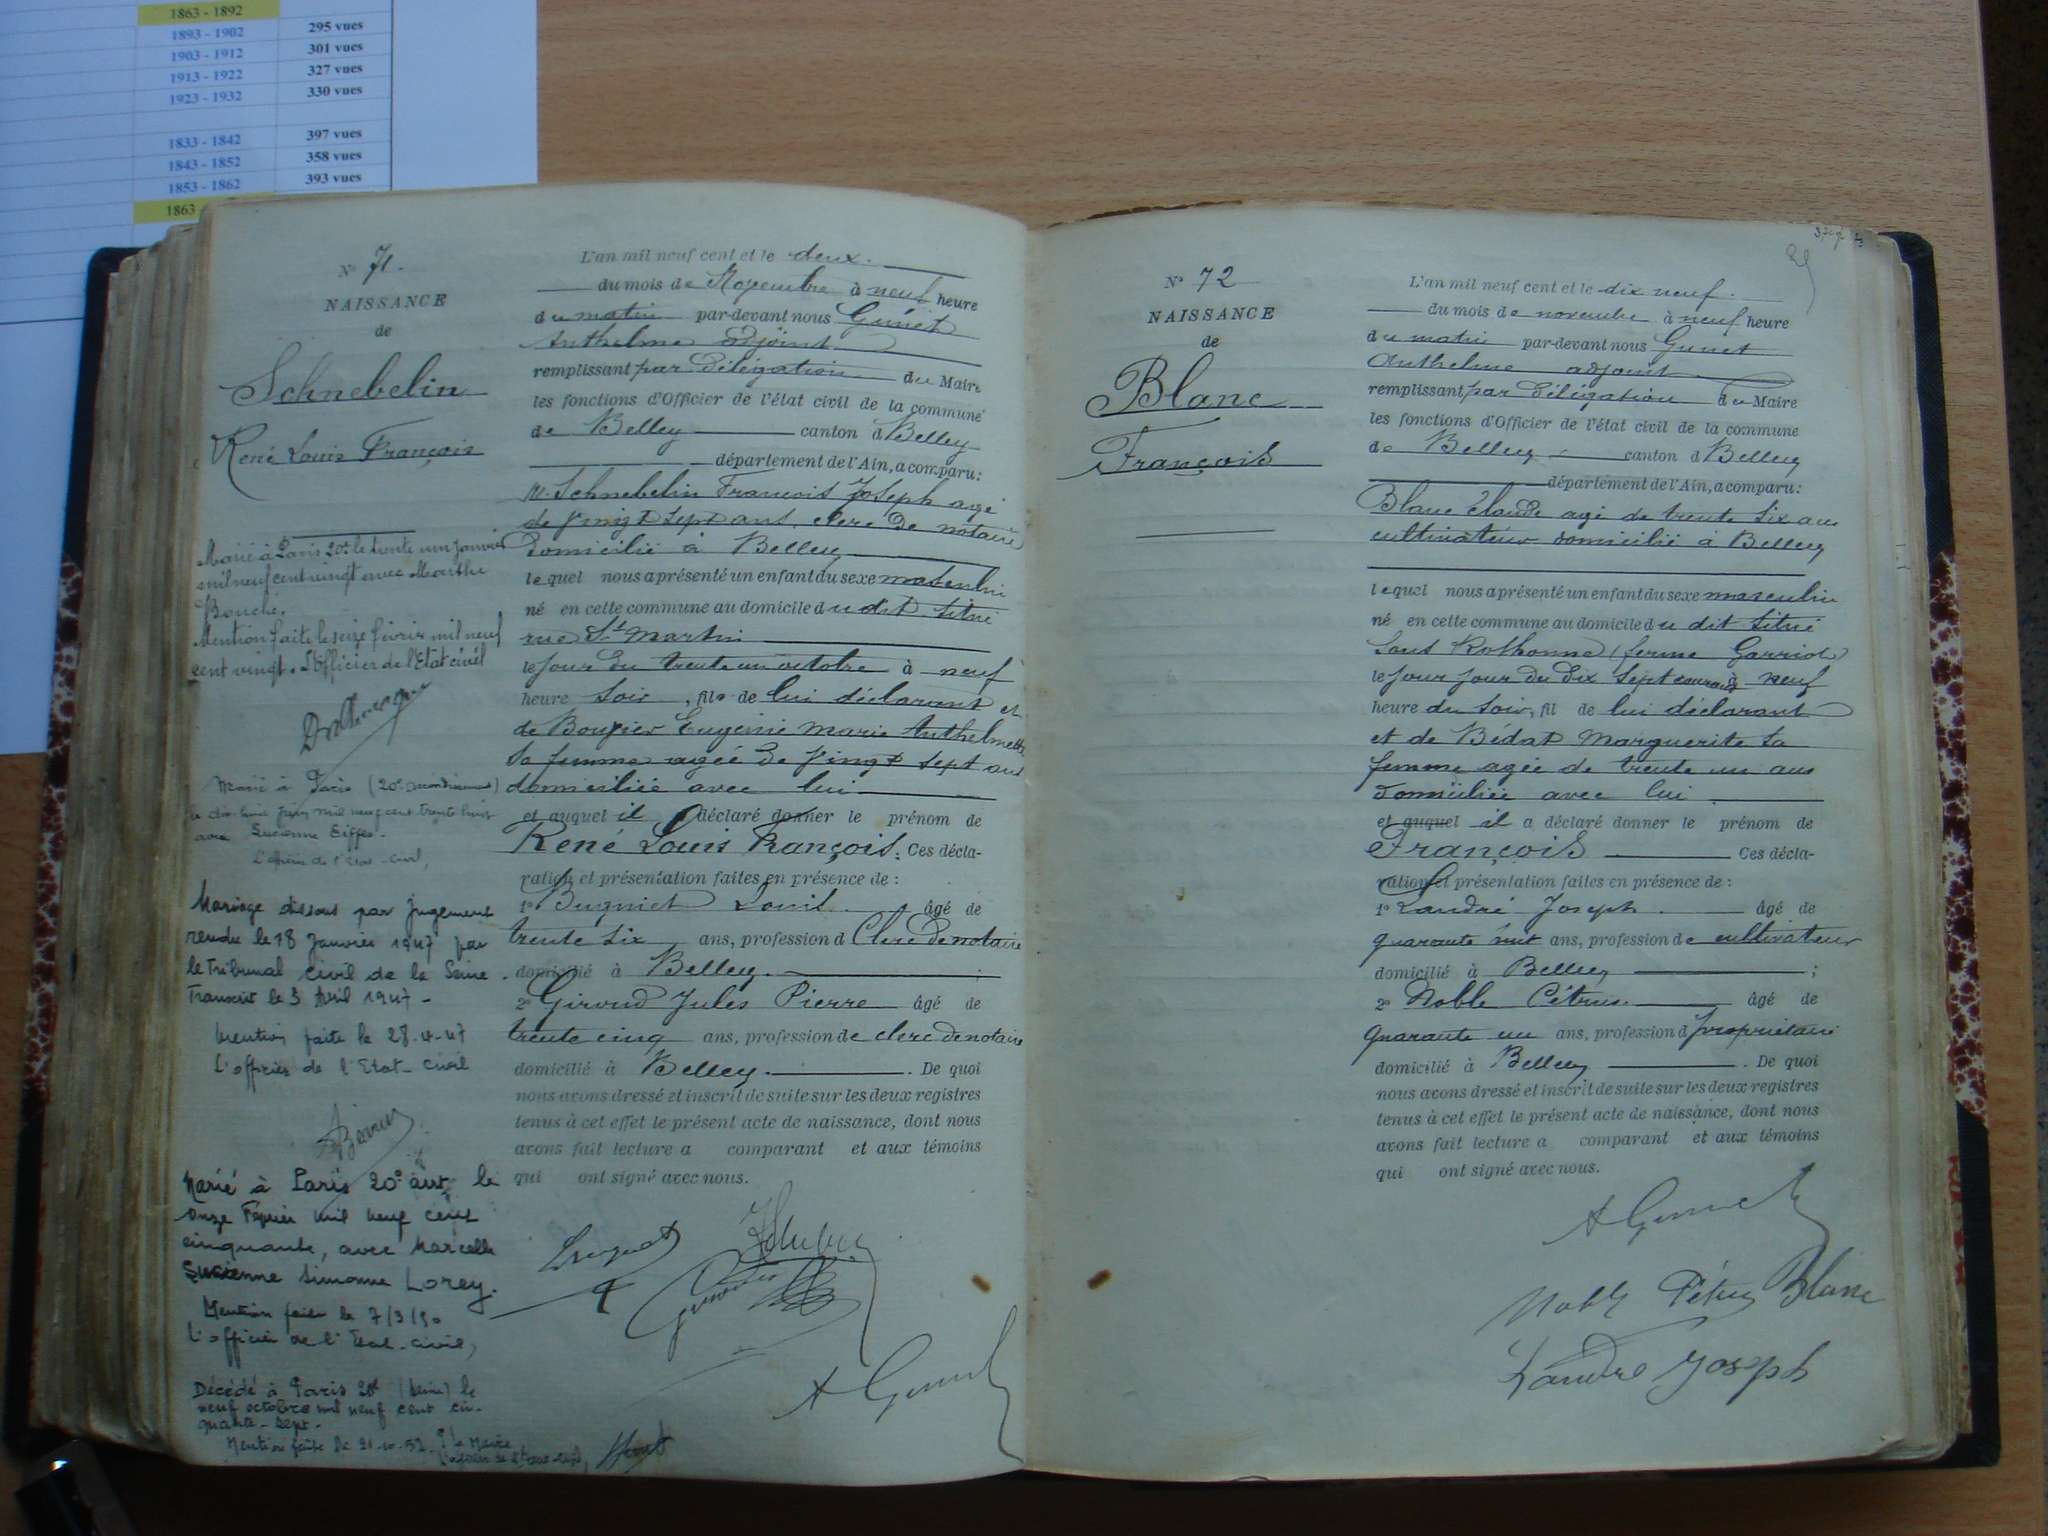 1863 - 1892
1893 - 1902 295 vues
1903 - 1912 301 vues
1913 - 1922 327 vues
1923 - 1932 330 vues
1833 - 1842 397 vues
1843 - 1852 358 vues
1853 - 1862 393 vues
1863 -
N° 71.
NAISSANCE
de
Schnebelin
René Louis François
Marié à Paris 20e le trente un janvier
mil neuf cent vingt avec Marthe
Bouché.
Mention faite le seize février mil neuf
cent vingt. L'Officier de l'Etat civil
Marié à Paris (20e arrondissement)
le dix huit juin mil neuf cent trente huit
avec Lucienne Eiffes.
L'officier de l'Etat-civil,
Mariage dissous par jugement
rendu le 18 Janvier 1947 par
le Tribunal civil de la Seine.
Transcrit le 3 Avril 1947 -
Mention faite le 28-4-47
L'officier de l'Etat-civil
Marié à Paris 20e arrt, le
onze Février mil neuf cent
cinquante, avec Marcelle
Lucienne Simonne Lorey.
Mention faite le 7/3/50
L'officier de l'Etat-civil,
Décédé à Paris 20e (Seine) le
neuf octobre mil neuf cent cin-
quante-sept.
Mention faite le 21-10-57. P/ le Maire
L'an mil neuf cent et le deux.
du mois de Novembre à neuf heure
du matin par-devant nous Gunet
Anthelme adjoint
remplissant par Délégation du Maire
les fonctions d'Officier de l'état civil de la commune
de Belley canton d Belley
département de l'Ain, a comparu:
M. Schnebelin François Joseph agé
de vingt sept ans, clerc de notaire
domicilié à Belley
lequel nous a présenté un enfant du sexe masculin
né en cette commune au domicile du dit situé
rue St Martin
le jour du trente un octobre à neuf
heure soir, fils de lui déclarant et
de Bouvier Eugénie Marie Anthelmette
sa femme agée de vingt sept ans
domiciliée avec lui
et auquel il a déclaré donner le prénom de
René Louis François. Ces décla-
ration et présentation faites en présence de :
1° Bugniet Louis âgé de
trente six ans, profession d Clerc de notaire
domicilié à Belley ;
2° Giroud Jules Pierre âgé de
trente cinq ans, profession de clerc de notaire
domicilié à Belley. De quoi
nous avons dressé et inscrit de suite sur les deux registres
tenus à cet effet le présent acte de naissance, dont nous
avons fait lecture a comparant et aux témoins
qui ont signé avec nous.
A Gunet
N° 72
NAISSANCE
de
Blanc
François
L'an mil neuf cent et le dix neuf.
du mois de novembre à neuf heure
du matin par-devant nous Gunet
Anthelme adjoint
remplissant par Délégation du Maire
les fonctions d'Officier de l'état civil de la commune
de Belley canton d Belley
département de l'Ain, a comparu:
Blanc Claude agé de trente six ans
cultivateur domicilié à Belley
lequel nous a présenté un enfant du sexe masculin
né en cette commune au domicile du dit situé
Sous Rothonne (ferme Garriot)
le jour jour du dix sept courant à neuf
heure du soir, fil de lui déclarant
et de Bédat Marguerite sa
femme agée de trente un ans
domiciliée avec lui
et auquel il a déclaré donner le prénom de
François Ces décla-
ration et présentation faites en présence de :
1° Landré Joseph âgé de
quarante huit ans, profession de cultivateur
domicilié à Belley ;
2° Noble Pétrus. âgé de
quarante un ans, profession d propriétaire
domicilié à Belley. De quoi
nous avons dressé et inscrit de suite sur les deux registres
tenus à cet effet le présent acte de naissance, dont nous
avons fait lecture a comparant et aux témoins
qui ont signé avec nous.
A Gunet
Noble Pétrus Blanc
Landré Joseph